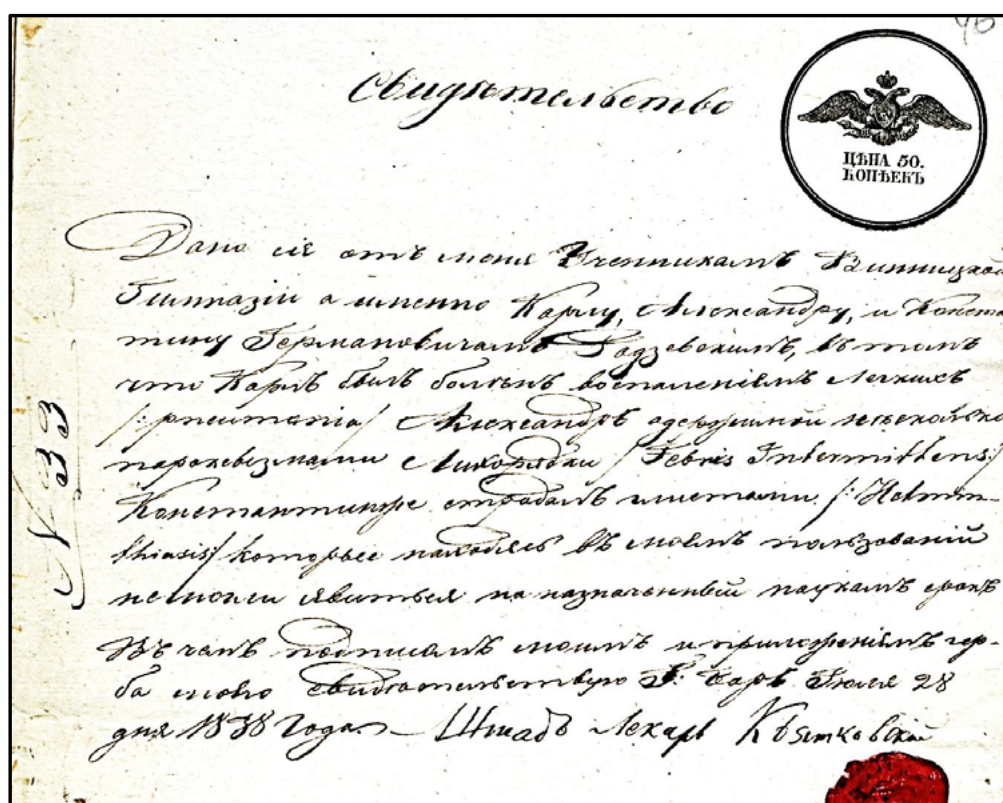 Свидѣтельство
ЦѢНА 50.
КОПѢЕКЪ
N 33
Дано сіе отъ меня Ученикамъ Винницкой
Гимназіи а именно Карлу, Александру, и Конста
тину Германовичамъ Годзевскимъ, въ томъ
что Карлъ былъ боленъ воспаленіемъ легкихъ
/:pneumania/ Александръ одержимой нѣсколько
пароксизмами Лихорадки /Febris Intermithens:/
Константинъ страдалъ глистами /:Helmin-
thiasis/ которые находясь въ моемъ пользованіи
немогли явиться на назначенный наукамъ срокъ
Въ чемъ подписомъ моимъ и приложеніемъ гер-
ба моего свидѣтельствую Г: Баръ Іюля 28
дня 1838 Года – Штабъ Лекарь